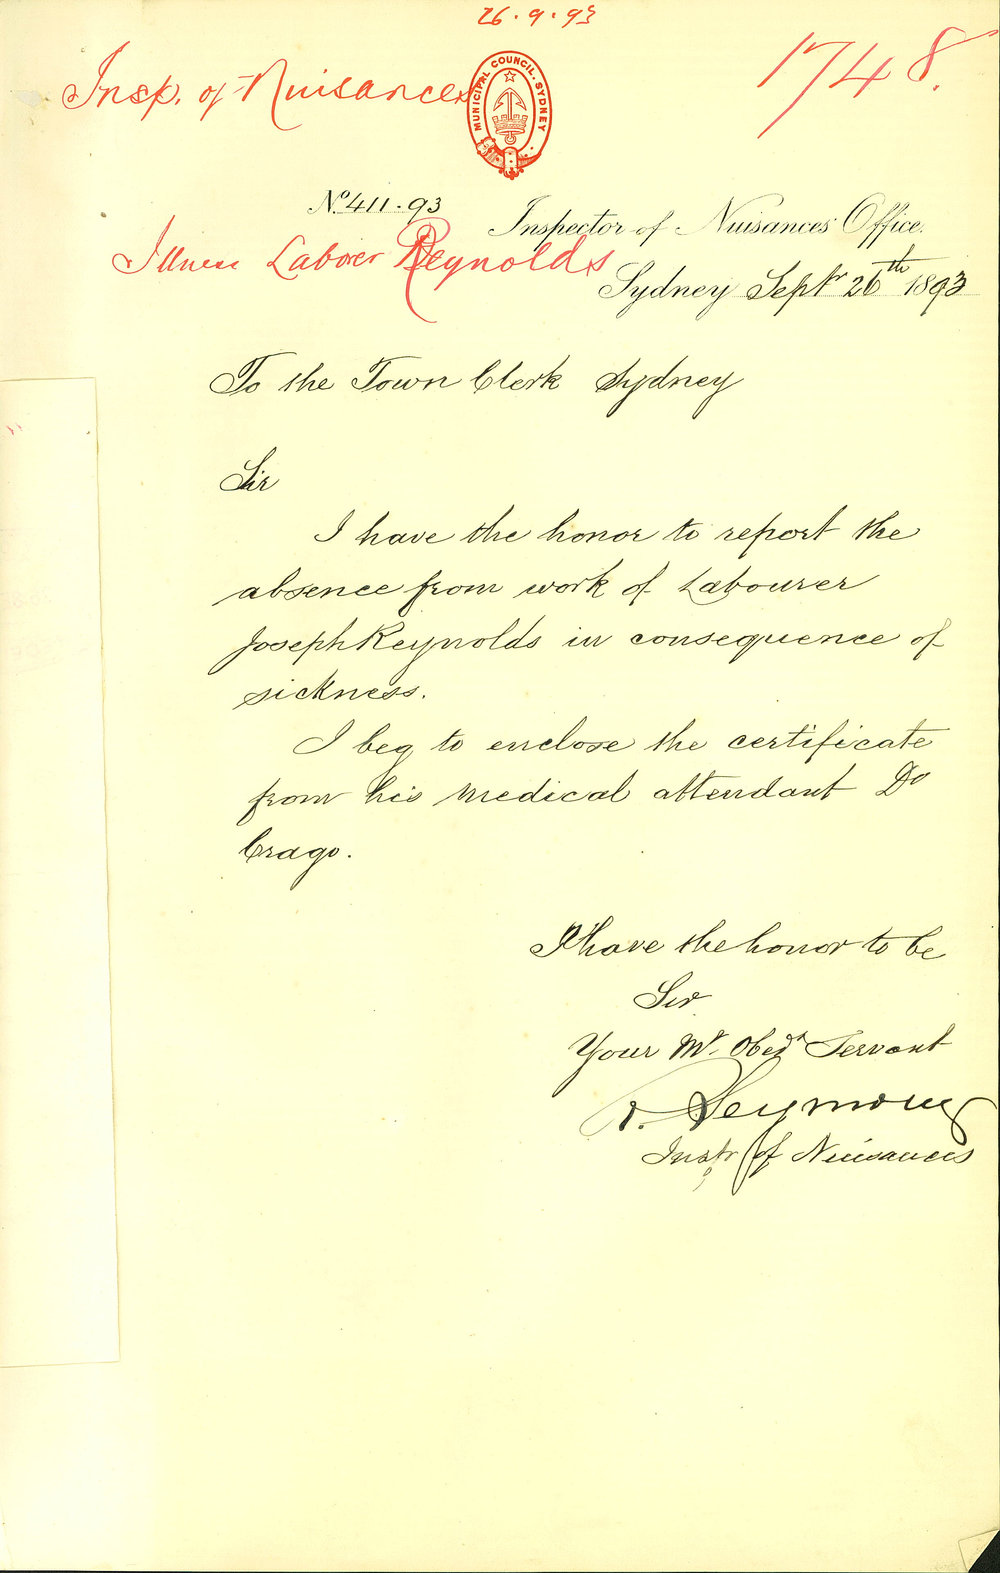 26.9.93
Insp. of Nuisances
1748.
MUNICIPAL COUNCIL. SYDNEY
No. 411.93
Inspector of Nuisances Office.
Illness Laborer Reynolds
Sydney Septr 26th 1893
To the Town Clerk Sydney
Sir
I have the honor to report the
absence from work of Labourer
Joseph Reynolds in consequence of
sickness.
I beg to enclose the certificate
from his medical attendant Dr
Crago.
I have the honor to be
Sir
Your Mt. Obedt Servant
R. Seymour
Instr of Nuisances